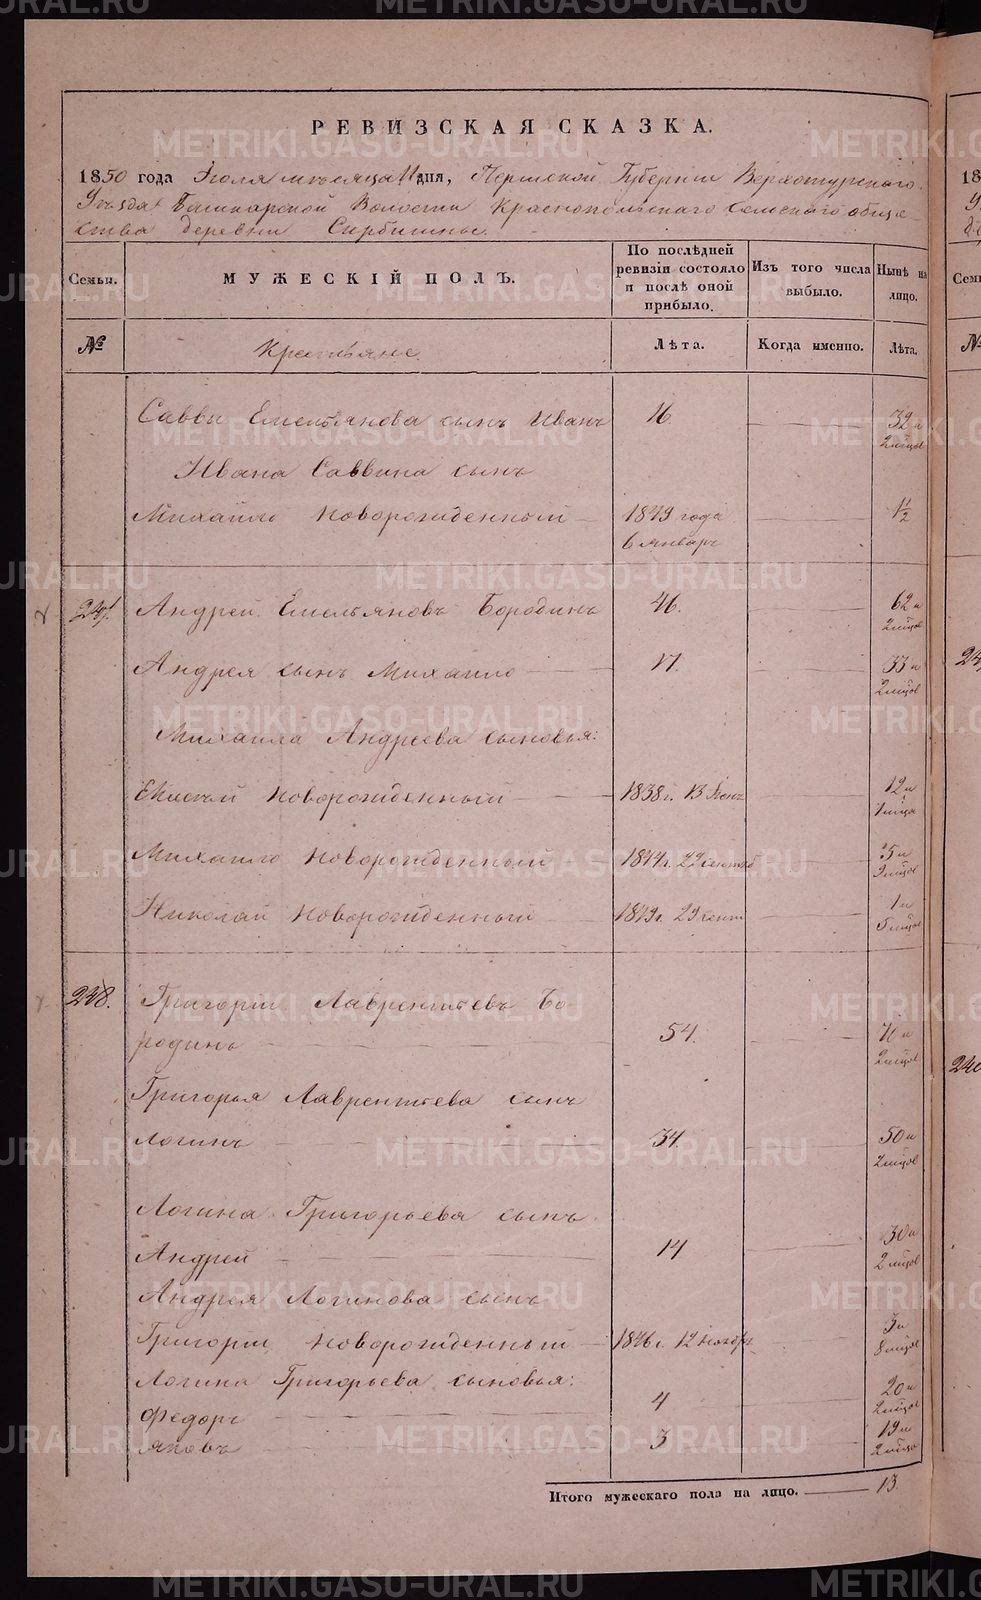 РЕВИЗСКАЯ СКАЗКА.
1850 года Июля месяца 11 дня, Пермской Губернии Верхотурскаго
Уезда Башкарской Волости Краснопольскаго сельскаго обще-
ства деревни
Семьи.
МУЖЕСКІЙ ПОЛЪ.
По послѣдней ревизіи состояло и послѣ оной прибыло.
Изъ того числа выбыло.
Нынѣ на лицо.
№
Крестьяне.
Лѣта.
Когда именно.
Лѣта.
Саввы Емельянова сынъ Иванъ 16. 32 и 2 мѣсцов
Ивана Саввина сынъ
Михайло новорожденный 1849 года 6 январь 1½
247. Андрей Емельяновъ Бородинъ 46. 62 и 2 мѣсцов
Андрея сынъ Михайло 17. 33 и 2 мѣсцов
Михайла Андреева сыновья:
новорожденный 1838 г. 13 12 и 1 мѣсца
Михайло новорожденный 1844 г. 22 5 и 9 мѣсцов
Николай новорожденный 1849 г. 29 1 и 5 мѣсцов
248. Григорій Лаврентьевъ Бо-
родинъ 54. 70 и 2 мѣсцов
Григорья Лаврентьева сынъ
Логинъ 34. 50 и 2 мѣсцов
Логина Григорьева сынъ
Андрей 14 30 и 2 мѣсцов
Андрея Логинова сынъ
Григорій новорожденный 1846 г. 12 ноябрь 3 и 8 мѣсцов
Логина Григорьева сыновья:
Федоръ 4 20 и 2 мѣсцов
Яковъ 3 19 и 2 мѣсцов
Итого мужескаго пола на лицо. 13.
METRIKI.GASO-URAL.RU